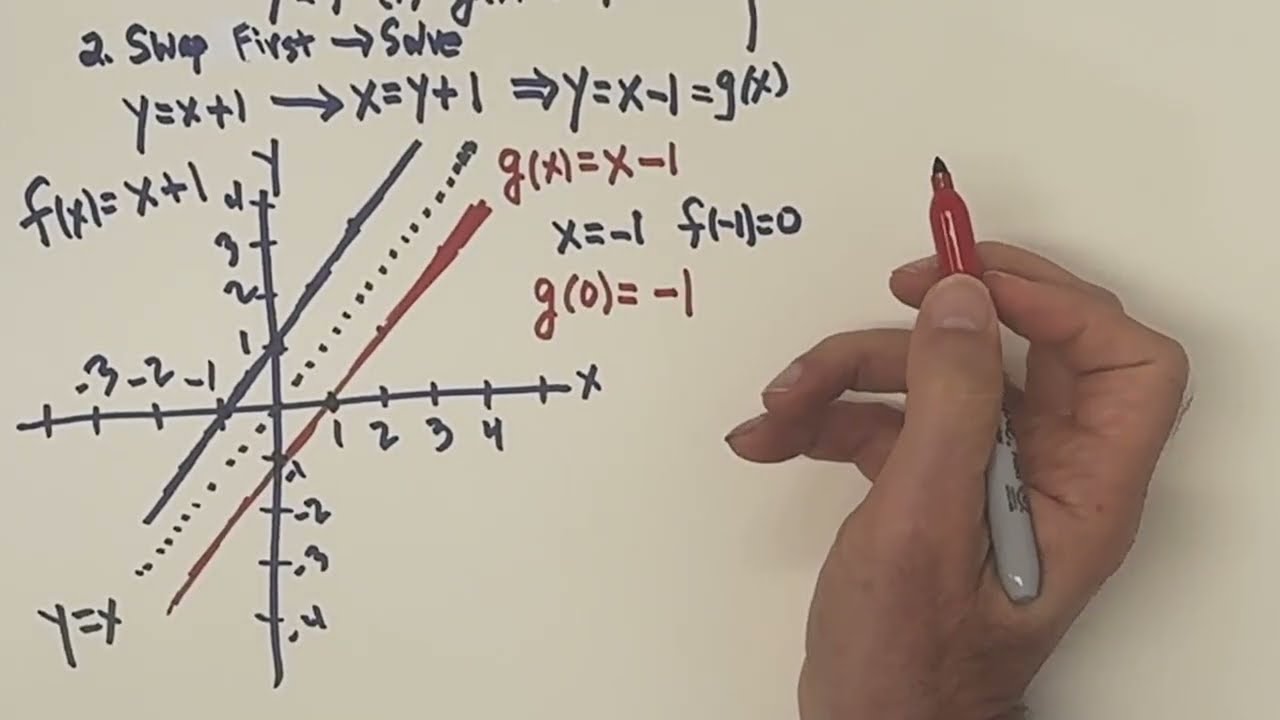 2. Swap First → Solve
y=x+1 → x=y+1 ⇒ y=x-1=g(x)
f(x)=x+1
Y
g(x)=x-1
4
x=-1 f(-1)=0
3
2
g(0)=-1
1
-3 -2 -1
X
1 2 3 4
-1
-2
-3
-4
y=x